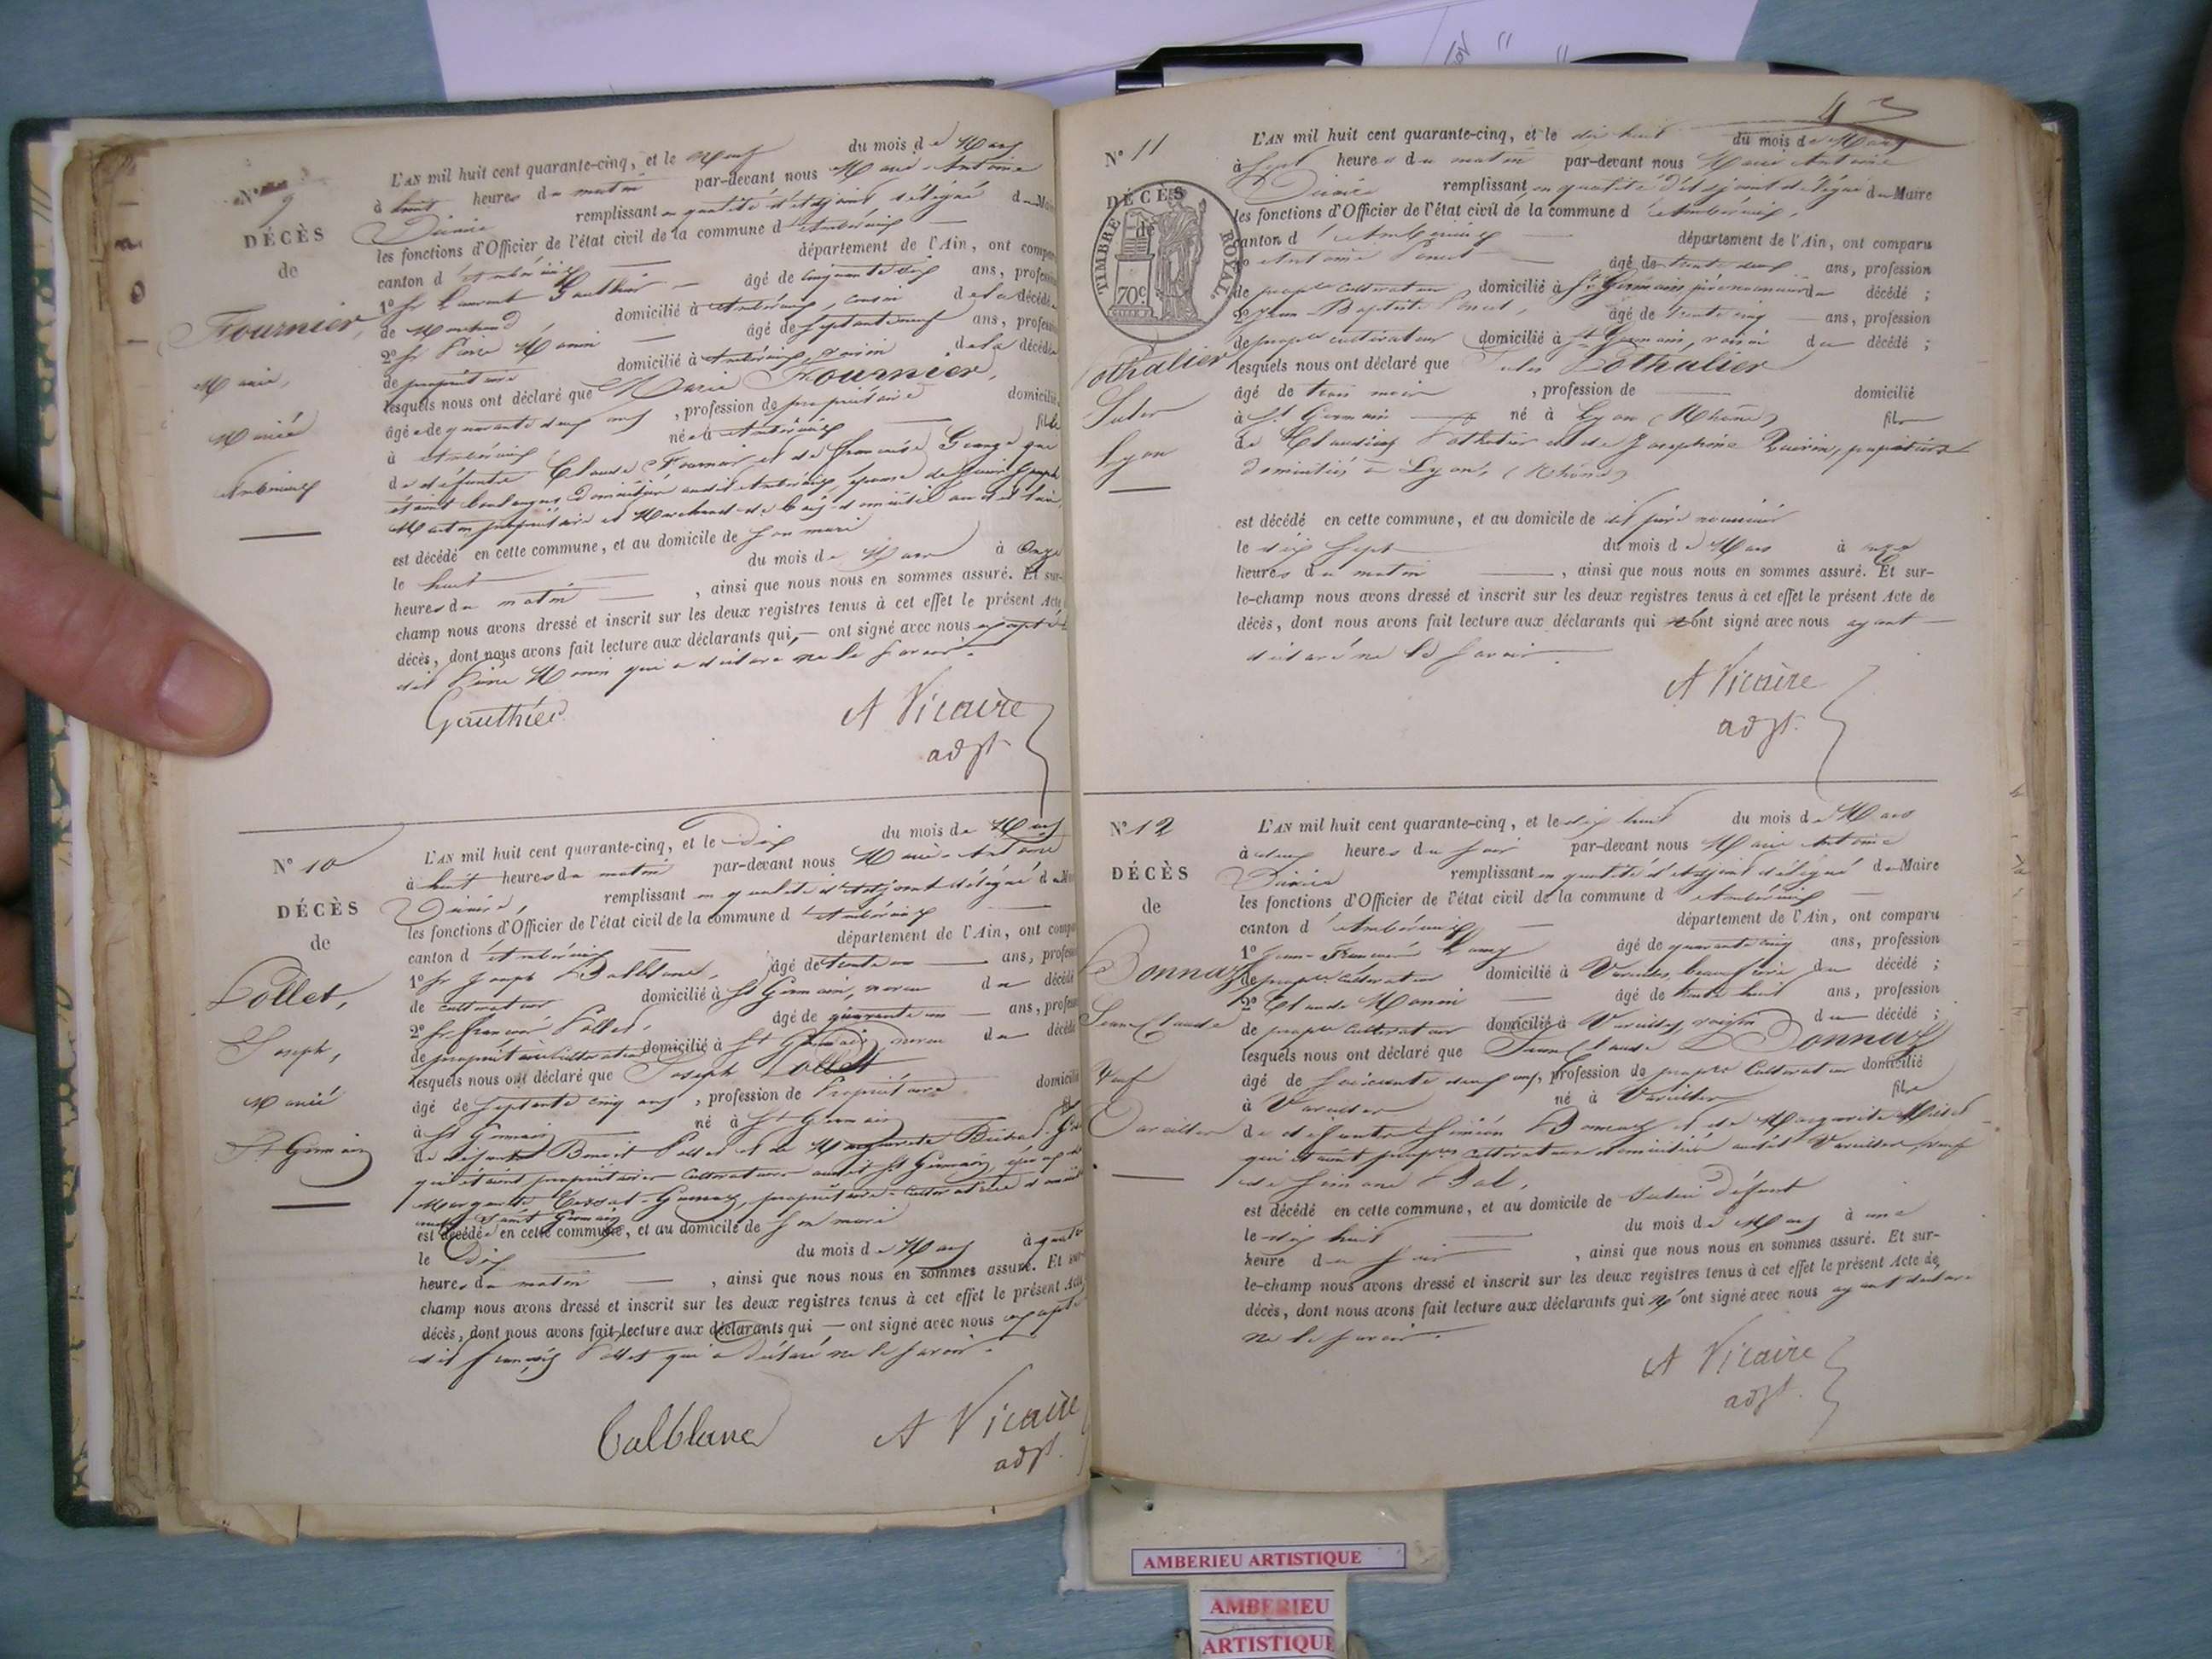 N° 9
DÉCÈS
de
Fournier,
Marie,
Mariée
Ambérieux
L'AN mil huit cent quarante-cinq, et le neuf du mois de Mars
à huit heures du matin par-devant nous Marie-Antoine
remplissant en qualité d'adjoint délégué du Maire
les fonctions d'Officier de l'état civil de la commune d'Ambérieux
canton d'Ambérieux département de l'Ain, ont comparu
1° Sr Laurent Gauthier âgé de cinquante six ans, profession
de Marchand, domicilié à Ambérieux, cousin de la décédée
2° Sr Pierre Monin âgé de septante neuf ans, profession
de propriétaire domicilié à Ambérieux, voisin de la décédée
lesquels nous ont déclaré que Marie Fournier,
âgée de quarante deux ans, profession de propriétaire domiciliée
à Ambérieux née à Ambérieux fille
de défunts Claude Fournier et de Françoise Grange que
étaient boulangers domiciliés audit Ambérieux, épouse de Joseph
propriétaire et Marchand de domicilié audit lieu,
est décédé en cette commune, et au domicile de son mari
le huit du mois de Mars à onze
heures du matin, ainsi que nous nous en sommes assuré. Et sur-
champ nous avons dressé et inscrit sur les deux registres tenus à cet effet le présent Acte
décès, dont nous avons fait lecture aux déclarants qui, — ont signé avec nous excepté
dit Pierre Monin qui a déclaré ne le savoir.
Gauthier
A Vicaire
adjt.
N° 10
DÉCÈS
de
Pollet,
Joseph,
Marié
St Germain
L'AN mil huit cent quarante-cinq, et le Dix du mois de Mars
à huit heures du matin par-devant nous Marie-Antoine
remplissant en qualité d'Adjoint délégué du
les fonctions d'Officier de l'état civil de la commune d'Ambérieux
canton d'Ambérieux département de l'Ain, ont comparu
1° Sr Joseph Balblanc, âgé de trente un ans, profession
de cultivateur domicilié à St Germain, neveu du décédé
2° Sr François Pollet, âgé de quarante un ans, profession
de propriétaire Cultivateur domicilié à St Germain neveu du décédé
lesquels nous ont déclaré que Joseph Pollet
âgé de septante cinq ans, profession de Propriétaire domicilié
à St Germain né à St Germain
de défunts Benoit Pollet et de Marguerite
qui étaient propriétaires Cultivateurs audit St Germain, époux de
Marguerite propriétaire-Cultivatrice
audit Saint Germain
est décédé en cette commune, et au domicile de son mari
le Dix du mois de Mars à quatre
heures du matin, ainsi que nous nous en sommes assuré. Et sur
champ nous avons dressé et inscrit sur les deux registres tenus à cet effet le présent Acte
décès, dont nous avons fait lecture aux déclarants qui — ont signé avec nous excepté
dit François Pollet qui a déclaré ne le savoir.
Balblanc
A Vicaire
adjt.
43
N° 11
DÉCÈS
de
TIMBRE ROYAL
70c
Pothalier
Lyon
L'AN mil huit cent quarante-cinq, et le dix huit du mois de Mars
à sept heures du matin par-devant nous Marie Antoine
remplissant en qualité d'Adjoint délégué du Maire
les fonctions d'Officier de l'état civil de la commune d'Ambérieux,
canton d'Ambérieux département de l'Ain, ont comparu
1° Antoine Poncet âgé de trente deux ans, profession
de propre cultivateur domicilié à St Germain, père nourricier du décédé ;
2° Jean-Baptiste Poncet, âgé de trente cinq ans, profession
de propre cultivateur domicilié à St Germain, voisin du décédé ;
lesquels nous ont déclaré que Pothalier
âgé de trois mois, profession de domicilié
à St Germain né à Lyon (Rhône) fils
de Claudius Pothalier et de Josephine propriétaires
domiciliés à Lyon, (Rhône)
est décédé en cette commune, et au domicile de dit père nourricier
le dix sept du mois de Mars à onze
heures du matin, ainsi que nous nous en sommes assuré. Et sur-
le-champ nous avons dressé et inscrit sur les deux registres tenus à cet effet le présent Acte de
décès, dont nous avons fait lecture aux déclarants qui n'ont signé avec nous ayant
déclaré ne le savoir.
A Vicaire
adjt.
N° 12
DÉCÈS
de
Bonnaz
Jean Claude
Veuf
Vareilles
L'AN mil huit cent quarante-cinq, et le dix huit du mois de Mars
à deux heures du soir par-devant nous Marie Antoine
remplissant en qualité d'Adjoint délégué du Maire
les fonctions d'Officier de l'état civil de la commune d'Ambérieux
canton d'Ambérieux département de l'Ain, ont comparu
1° Jean-François âgé de quarante cinq ans, profession
de propre Cultivateur domicilié à Vareilles, beau frère du décédé ;
2° Claude Monin âgé de trente huit ans, profession
de propre Cultivateur domicilié à Vareilles, voisin du décédé ;
lesquels nous ont déclaré que Jean Claude Bonnaz
âgé de soixante deux ans, profession de propre Cultivateur domicilié
à Vareilles né à Vareilles fils
de défunts Siméon Bonnaz et de Marguerite
qui étaient propres cultivateurs domiciliés audit Vareilles, veuf
de
est décédé en cette commune, et au domicile de défunt
le dix huit du mois de Mars à une
heure du soir, ainsi que nous nous en sommes assuré. Et sur-
le-champ nous avons dressé et inscrit sur les deux registres tenus à cet effet le présent Acte de
décès, dont nous avons fait lecture aux déclarants qui n'ont signé avec nous ayant déclaré
ne le savoir.
A Vicaire
adjt.
AMBERIEU ARTISTIQUE
AMBERIEU
ARTISTIQUE